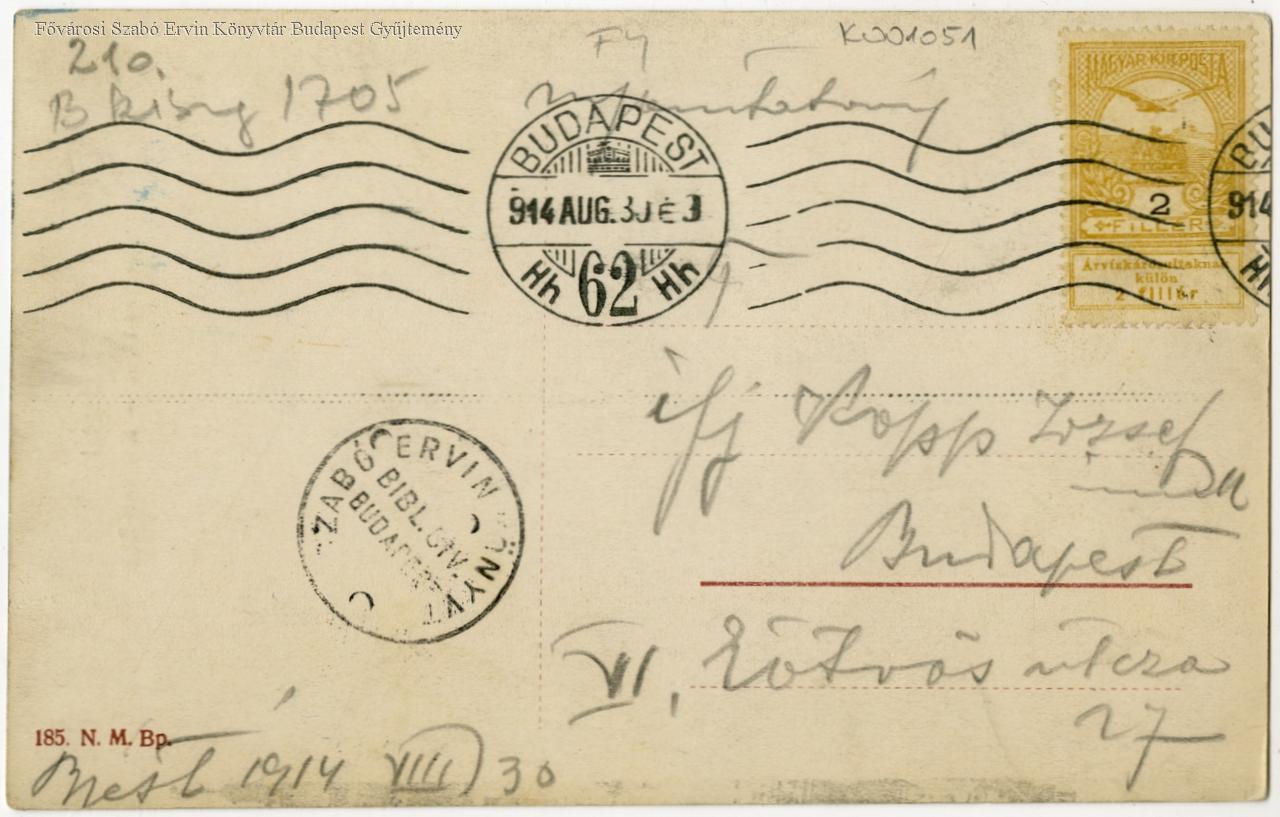 Fővárosi Szabó Ervin Könyvtár Budapest Gyűjtemény
K001051
210.
1705
BUDAPEST
914 AUG. 30 É
Hh 62 Hh
MAGYAR KIR. POSTA
2
FILLÉR
Árvízkárosultaknak
külön
2 fillér
BU
914
ifj Kopp József
Budapest
VI, Eötvös utcza
27
SZABÓ ERVIN KÖNYVT
BIBL. CIV.
BUDAPEST
185. N. M. Bp.
Bpest 1914 VIII 30